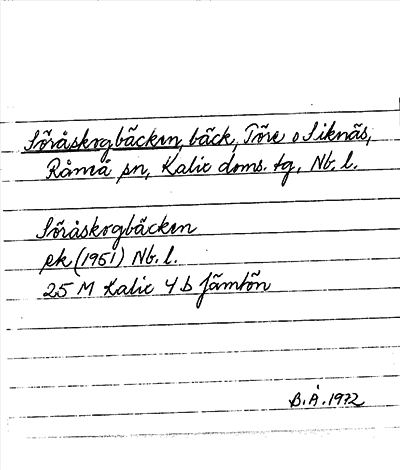 Söråskogbäcken, bäck, Töre o Siknäs,
Råneå sn, Kalix doms. tg, Nb. l.
Söråskogbäcken
ek (1951) Nb. l.
25 M Kalix 4 b Jämtön
B.Å. 1972